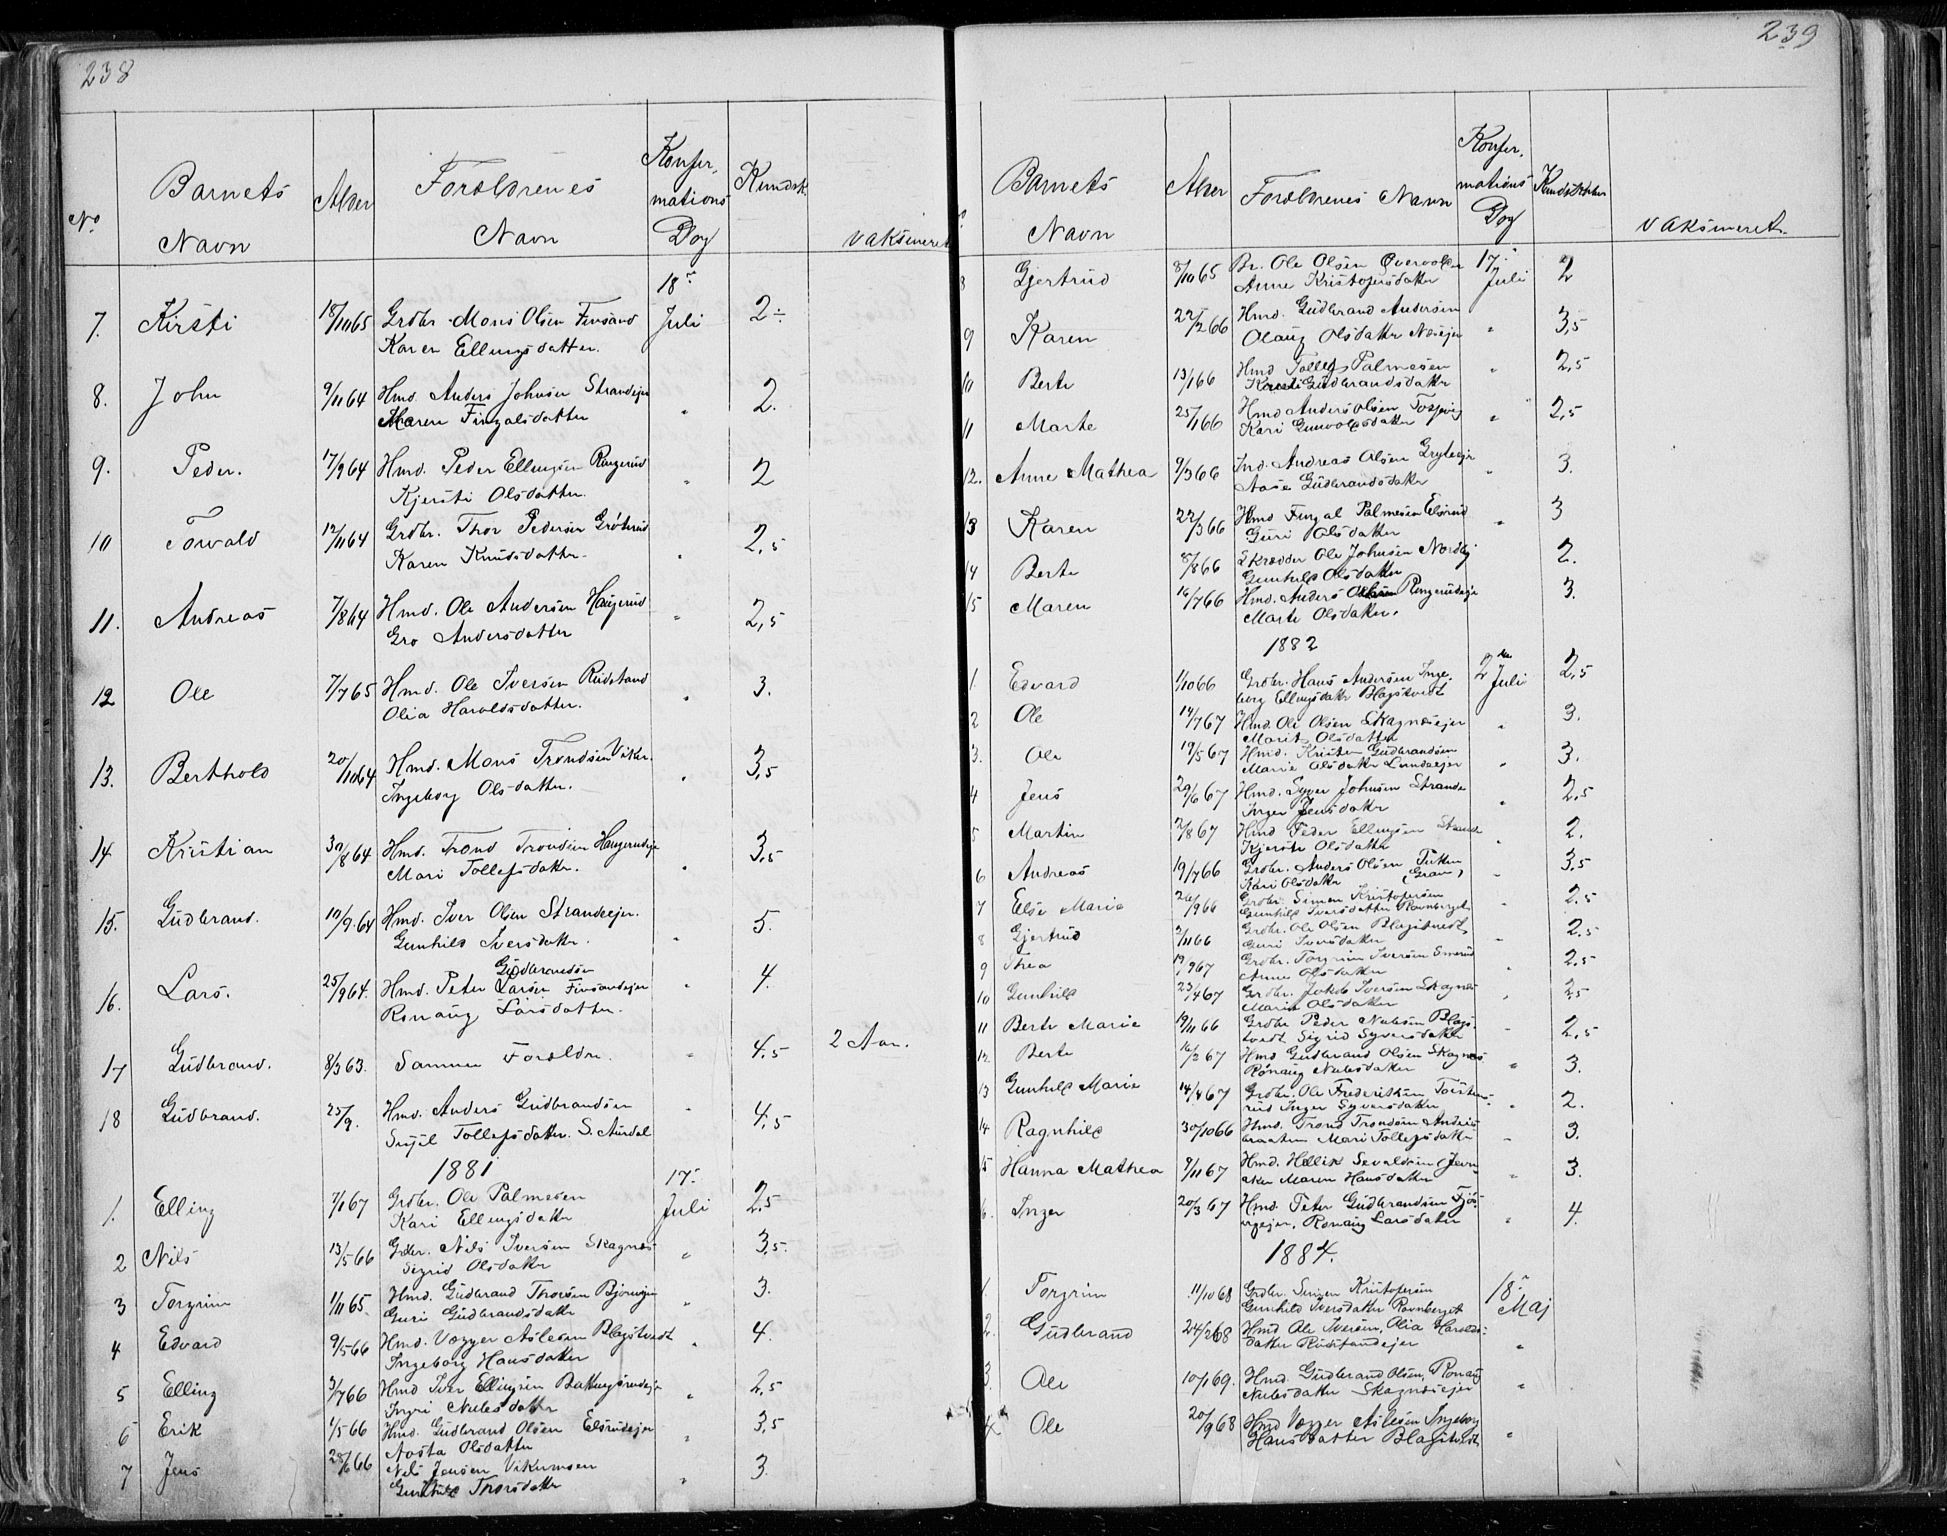 238
No.
Barnets
Navn
Alder
Forældrenes
Navn
Konfir,
mations
Dag
Kundsk.
vaksineret
18de
7. Kirsti 18/1165 Grdbr. Mons Olsen Finsand Juli 2÷
Karen Ellingsdatter.
8. John 9/1164 Hmd. Anders Johnsen Strandejer " 2.
Maren Fingalsdatter
9. Peder. 17/964 Hmd. Peder Ellingsen Ringerud " 2
Kjersti Olsdatter.
10 Torvald 12/1164 Grdbr. Thor Pedersen Grøterud " 2,5
Karen Knudsdatter.
11. Andreas 7/864 Hmd. Ole Andersen Haugerud " 2,5
Gro Andersdatter
12 Ole 7/765 Hmd. Ole Iversen Rudstand " 3.
Olia Haroldsdatter.
13. Berthold 20/1064 Hmd. Mons Trondsen Viker. " 3,5
Ingeborg Olsdatter.
14 Kristian 30/864 Hmd. Trond Trondsen Haugerudeje " 3,5
Mari Tollefsdatter.
15. Gudbrand. 12/9.64 Hmd. Iver Olsen Strandeejer. " 5.
Gunhild Iversdatter.
Gudbrandsen
16. Lars. 25/964. Hmd. Peter Larsen Finsandejer " 4.
Ronaug Larsdatter.
17 Gudbrand. 8/363. Samme Forældre " 4.5 2 Aar.
18 Gudbrand. 25/9. Hmd. Anders Gudbrandsen " 4,5
Sigil Tollefsdatter. S. Aurdal
1881 17de
1. Elling 7/167 Grdbr. Ole Palmesen Juli 2,5
Kari Ellingsdatter
2 Nils 13/566 Grdbr. Nils Iversen Skagnæs " 3,5.
Sigrid Olsdatter
3 Torgrim 1/1165. Hmd. Gudbrand Thorsen Bjørnejer " 3.
Guri Gudbrandsdatter
4 Edvard 9/566 Hmd. Vegger Aslesen Blagstvedt " 4.
Ingeborg Hansdatter
5 Elling 3/766 Hmd Iver Ellingsen " 2,5
Ingri Nilsdatter
6 Erik 1/566 Hmd. Gudbrand Olsen Elsrudejer " 3,5
Aasta Olsdatter
7 Jens 28/666 Nils Jensen " 3.
Gunhild Thorsdatter
239
Barnets
Navn
Alder
Forældrenes Navn
Konfir,
mations
Dag
Kundskaber
vaksineret.
8 Gjertrud 8/1065 Br. Ole Olsen 17de Juli 2
Anne Kristofersdatter
9 Karen 22/266 Hmd. Gudbrand Andersen " 3,5
Olaug Olsdatter Næsejer
10 Berte 13/166 Hmd Tollef Palmesen " 2,5
Kristi Gudbrandsdatter
11 Marte 25/166 Hmd Anders Olsen " 2,5
Kari Gunvoldsdatter
12. Anne Mathea 9/366 Ind. Andreas Olsen Gryteejer " 3.
Aase Gudbrandsdatter
13 Karen 22/366 Hmd Fingal Palmesen Elsrud " 3
Guri Olsdatter
14 Berte 8/866 Skrædder Ole Johnsen Nordby " 2.
Gunhild Olsdatter
15 Maren 16/766 Hmd. Anders Olsen Ringerudeje 3.
Marte Olsdatter.
1882
1. Edvard 1/1066 Grdbr. Hans Andersen Inge- 2den Juli 2,5
borg Ellingsdatter Blagstvedt
2 Ole 14/767 Hmd. Ole Olsen Skagnæsejer " 3.
Marit Olsdatter
3. Ole 19/567 Hmd. Kristen Gudbrandsen " 3.
Marie Olsdatter Lundeejer
4 Jens 29/667 Hmd. Syver Johnsen Strande " 2.5
Inger Jensdatter
5 Martin 2/867 Hmd Peder Ellingsen Strand " 2.
Kjersti Olsdatter
6 Andreas 19/766 Grdbr. Anders Olsen " 3,5
Kari Olsdatter (Gram)
7 Else Marie 26/966 Grdbr. Simen Kristofersen " 2.5
Gunhild Iversdatter Ravnberget
8 Gjertrud 2/1166 Grdbr. Ole Olsen Blagstvedt " 2.5
Guri Iversdatter
9 Thea 19/967 Grdbr. Torgrim Iversen Smerud " 2.5
Anne Olsdatter
10 Gunhild 23/467 Grdbr. Jakob Iversen Skagnæs " 2,5
Marie Olsdatter
11 Berte Marie 19/1166 Grdbr Peder Nilsen Blags- " 2,5
tvedt Sigrid Syversdatter
12. Berte 16/267 Hmd Gudbrand Olsen Skagnæs " 3.
Rønaug Nilsdatter
13 Gunhild Marie 14/467 Grdbr. Ole Frederiksen Torsten- " 2.
rud Inger Syversdatter
14 Ragnhild 30/1066 Hmd. Trond Trondsen Andreas- " 3.
braaten Mari Tollefsdatter
15 Hanna Mathea 9/1167 Hmd. Hellik Sevaldsen Jevn- " 3.
aker Maren Hansdatter
6. Inger 20/367 Hmd. Peter Gudbrandsen " 4.
Ronaug Larsdatter
1884.
1. Torgrim 11/1068 Grdbr. Simen Kristofersen 18de Maj
Gunhild Iversdatter Ravnberget
2. Gudbrand 24/268 Hmd Ole Iversen, Olia Harolds- "
datter Rudstandejer
3. Ole 10/169. Hmd. Gudbrand Olsen, Ronaug "
Nilsdatter Skagnæsejer
4 Ole 20/968 Hmd Vegger Aslesen Ingeborg "
Hansdatter Blagstvedt